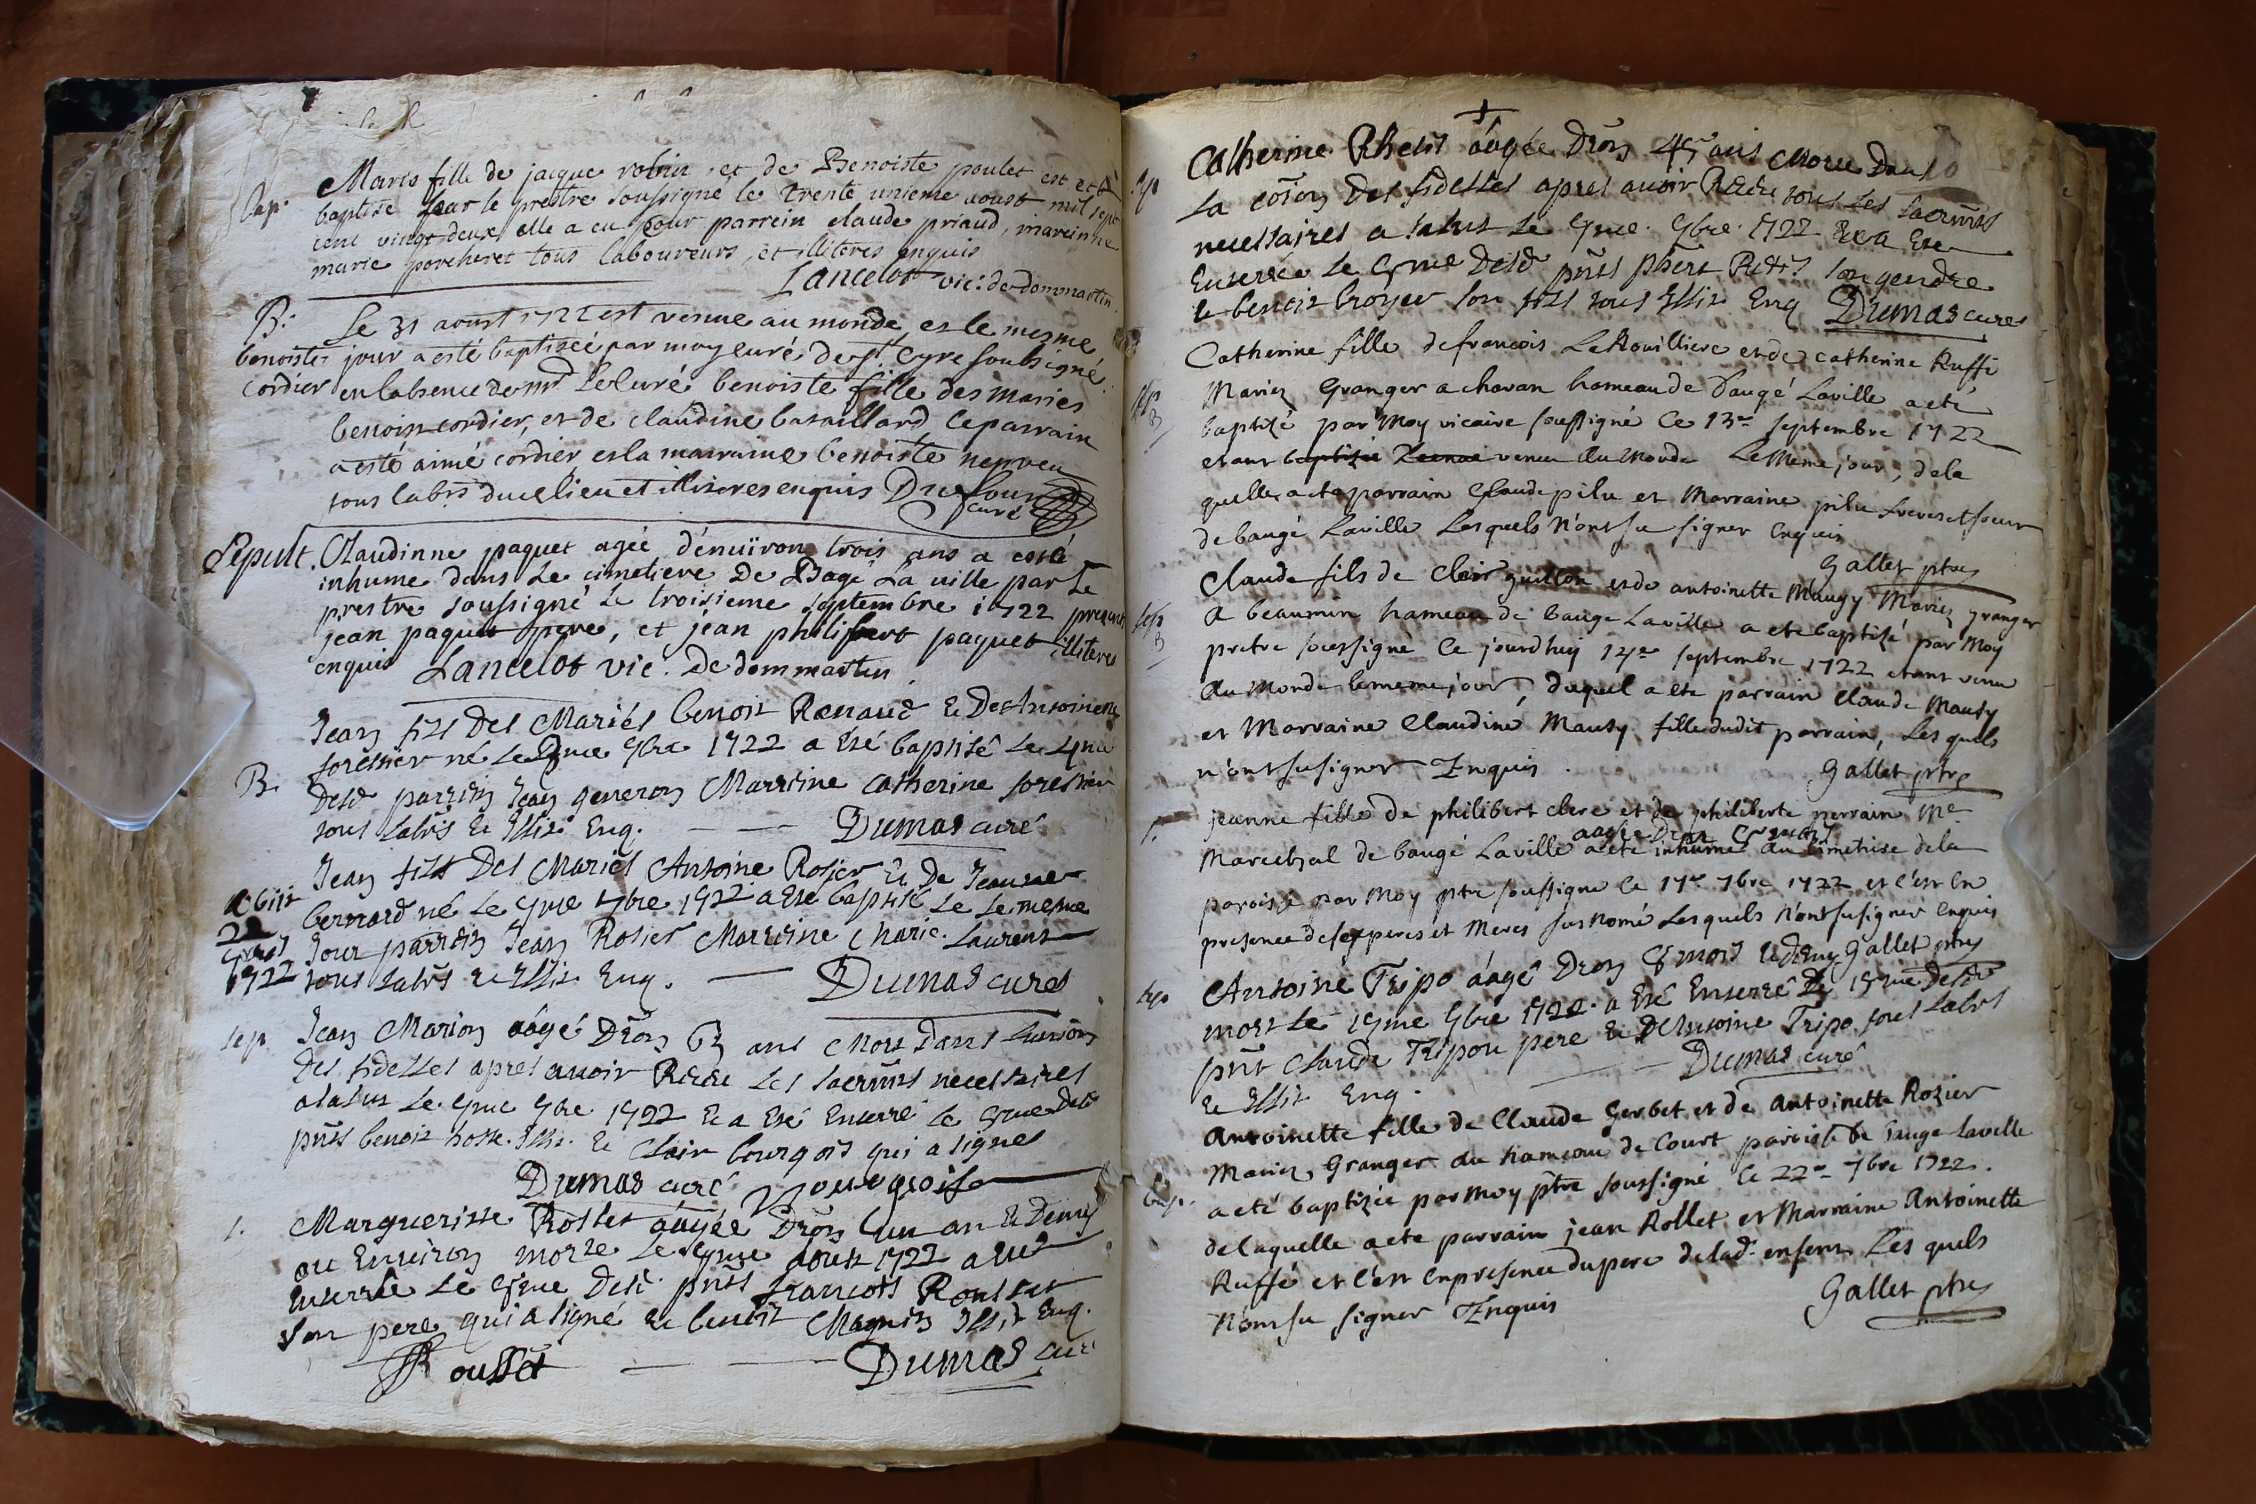 Bap.
Marie fille de jacque robin et de Benoiste poulet est esté
baptise par le prestre soussigné le trente unieme aoust mil sept
cent vingt deux elle a eu pour parrein claude priaud, mareinne
marie porcheret tous laboureurs, et illiteres enquis
Lancelot vic: de dommartin
B.
Le 31 aoust 1722 est venue au monde et le mesme
benoiste jour a esté baptizée par moy curé de st Cyre soubsigné
cordier en labsence de mr le Curé benoiste fille des maries
benoist cordier, et de claudine bataillard le parrain
a esté aimé cordier et la marraine benoiste nepveu
tous labrs dudt lieu et illiteres enquis Dufour
curé
Sepult. Claudinne paquet agée d'enuiron trois ans a esté
inhume dans le cimetiere de Bagé La ville par le
prestre soussigné le troisieme septembre 1722 present
jean paquet pere, et jean philibert paquet illiteres
enquis Lancelot vic. de dommartin
Jean fils des Mariés benoit Renaud & de Antoinette
forestier né le 7bre 1722 a Eté baptisé le 4me
B.
desd parrein Jean generon Marreine Catherine forestier
tous labrs & Illit Enq. Dumas curé
Jean fils des Mariés Antoine Rosier & de Jeanne
obiit
bernard né le 7bre 1722 a Ete baptisé le le mesme
22
Jour parrein Jean Rosier Marreine Marie Laurent
1722 tous labrs & Illit Enq. Dumas curé
sep
Jean Marion aâgé Dron 63 ans Mort Dans Lunion
Des fidelles apres auoir Recu les sacrmts necessaires
a salut le 7bre 1722 & a Eté Enterré le 5me desd
pnts benoit hoste Illit. & Clair bourgois qui a signé
Dumas curé Bourgois
S.
Marguerisse Rosset aâgée Dron un an & Demy
ou Enuiron morte le aoust 1722 a eté
Enterrée le 5me desd. pnts francois Rousset
son pere qui a signé & benoit Magnin Illit Enq.
Rousset Dumas curé
sep
Catherine Rhetis aâgée Dron 45 ans Morte Dans
La cōion Des fidelles apres auoir Recu tous les sacrmts
necessaires a salut le 7bre 1722 & a Ete
Enterrée le 5me Desd pnts phert Retis son gendre
& benoit broyer son fils tous Illit Enq Dumas curé
Catherine fille de francois La Rouilliere et de catherine Ruffi
sep
B
Mariez Granger a chavan hameau de Baugé Laville a eté
baptizé par Moy vicaire soussigné Ce 13e septembre 1722
etant baptizée venue au Monde le Meme jour, de la
quelle a eta parrain Claude pilu et Marraine pilu freres et soeur
de baugé Laville Lesquels N'ont su signer Enquis
Gallet ptre
Claude fils de Clair guillon et de antoinette Maugy Mariez granger
sep
B
A beaumin hameau de bauge Laville a ete baptizé par Moy
pretre soussigne Ce jourdhuy 14e septembre 1722 etant venu
Au Monde le meme jour, duquel a ete parrain Claude Mauby
et Marraine Claudine Mauby fille dudit parrain, Les quels
n'ont su signer Enquis
Gallet ptre
S.
jeanne fille de philibert clere et de philiberte perrain Me
aagée dron 5 ans
Marechal de baugé Laville a eté inhumé au Cimetiere de la
paroisse par Moy ptre soussigne Ce 17e 7bre 1722 et c'est En
presence de ses peres et Meres sus nomé Lesquels N'ont su signer Enquis
Gallet ptre
sep
Antoine Tripo aâgé Dron 8 mois & demy
mort le 7bre 1722 a Eté Enterré Le 15me desd
pnt Claude Tripou pere & D'Antoine Tripo tous Labrs
& Illit Enq. Dumas curé
Antoinette fille de Claude Gerbet et de Antoinette Rozier
Mariez Granger au hameau de Court paroisse de Bauge Laville
bap.
a eté baptizée par moy ptre soussigné Ce 22e 7bre 1722.
de laquelle a ete parrain jean Rollet et Marraine Antoinette
Ruffé et c'est Enpresence du pere de lad. enfent Les quels
N'ont su signer Enquis
Gallet ptre